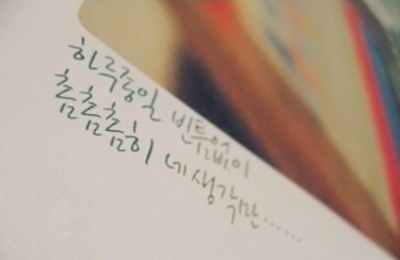 하루종일 빈틈없이
촘촘촘히 네생각만......